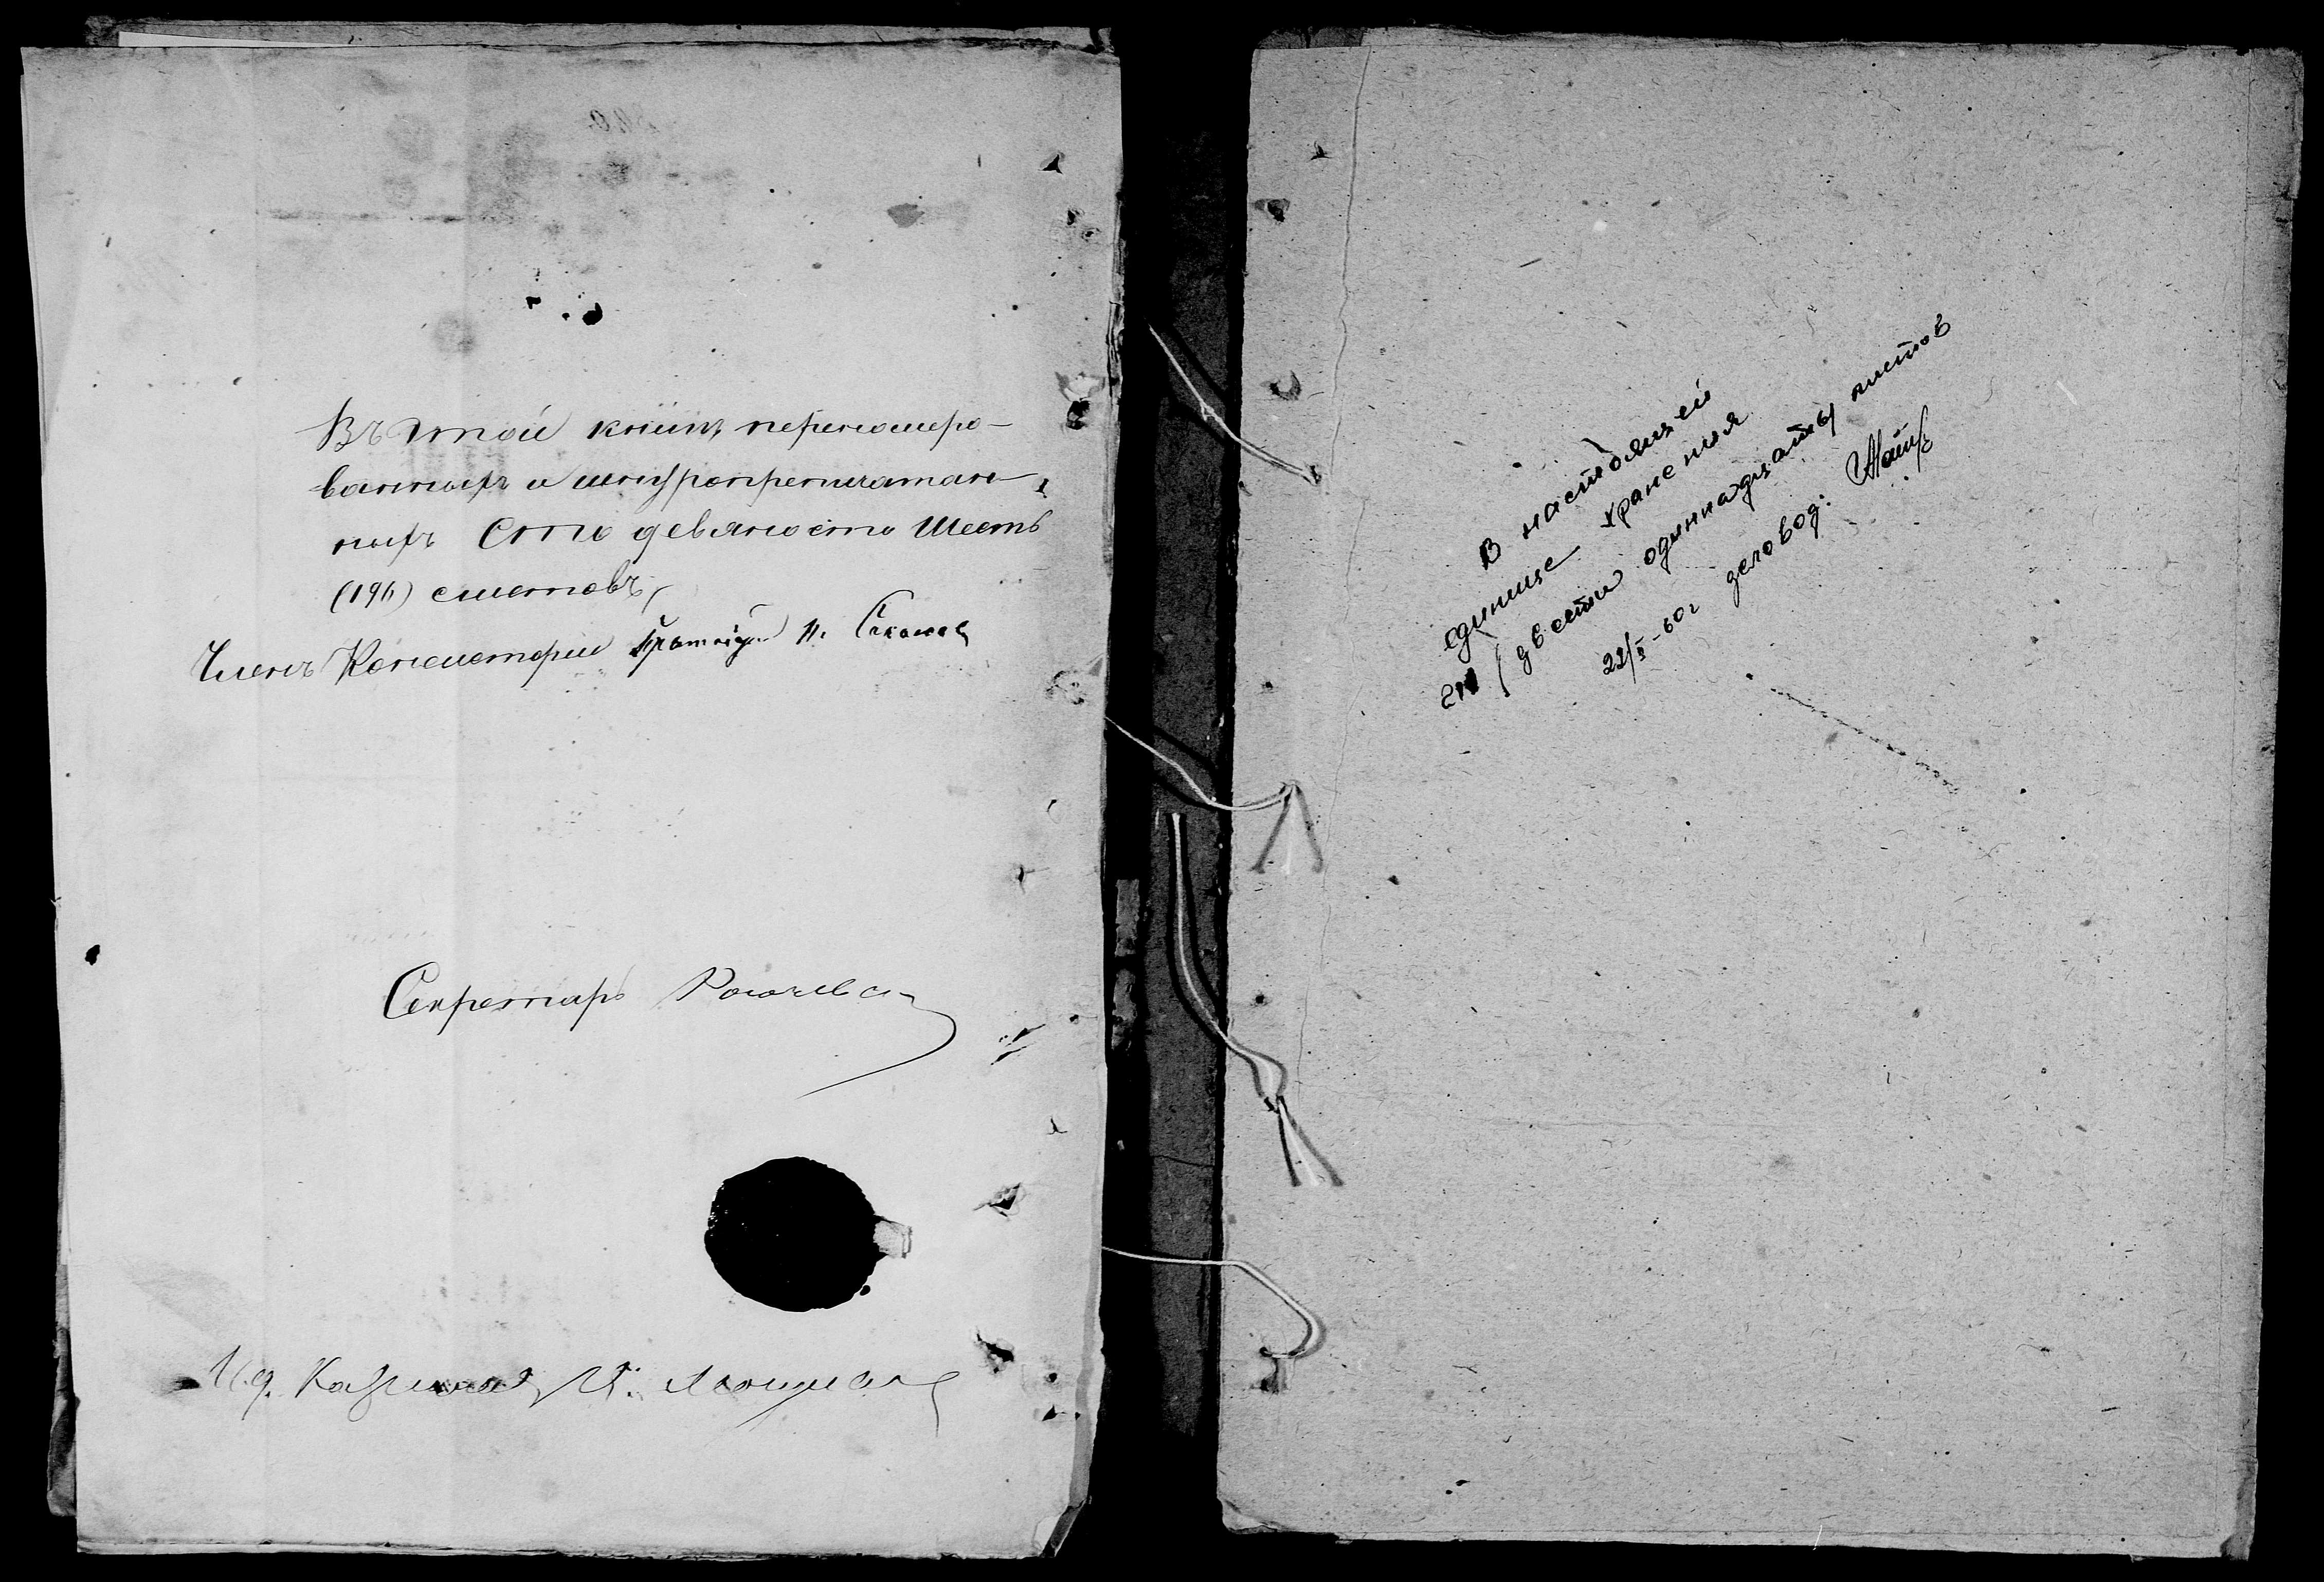 Въ этой книгѣ перенумеро-
ванныхъ и шнуропрепечатан-
ныхъ Сто девяносто шесть
(196) листовъ.
Членъ Консисторіи
Секретарь
И.д.
В настоящей
единице хранения
211 (двести одиннадцать) листов
22/X-60г деловод: